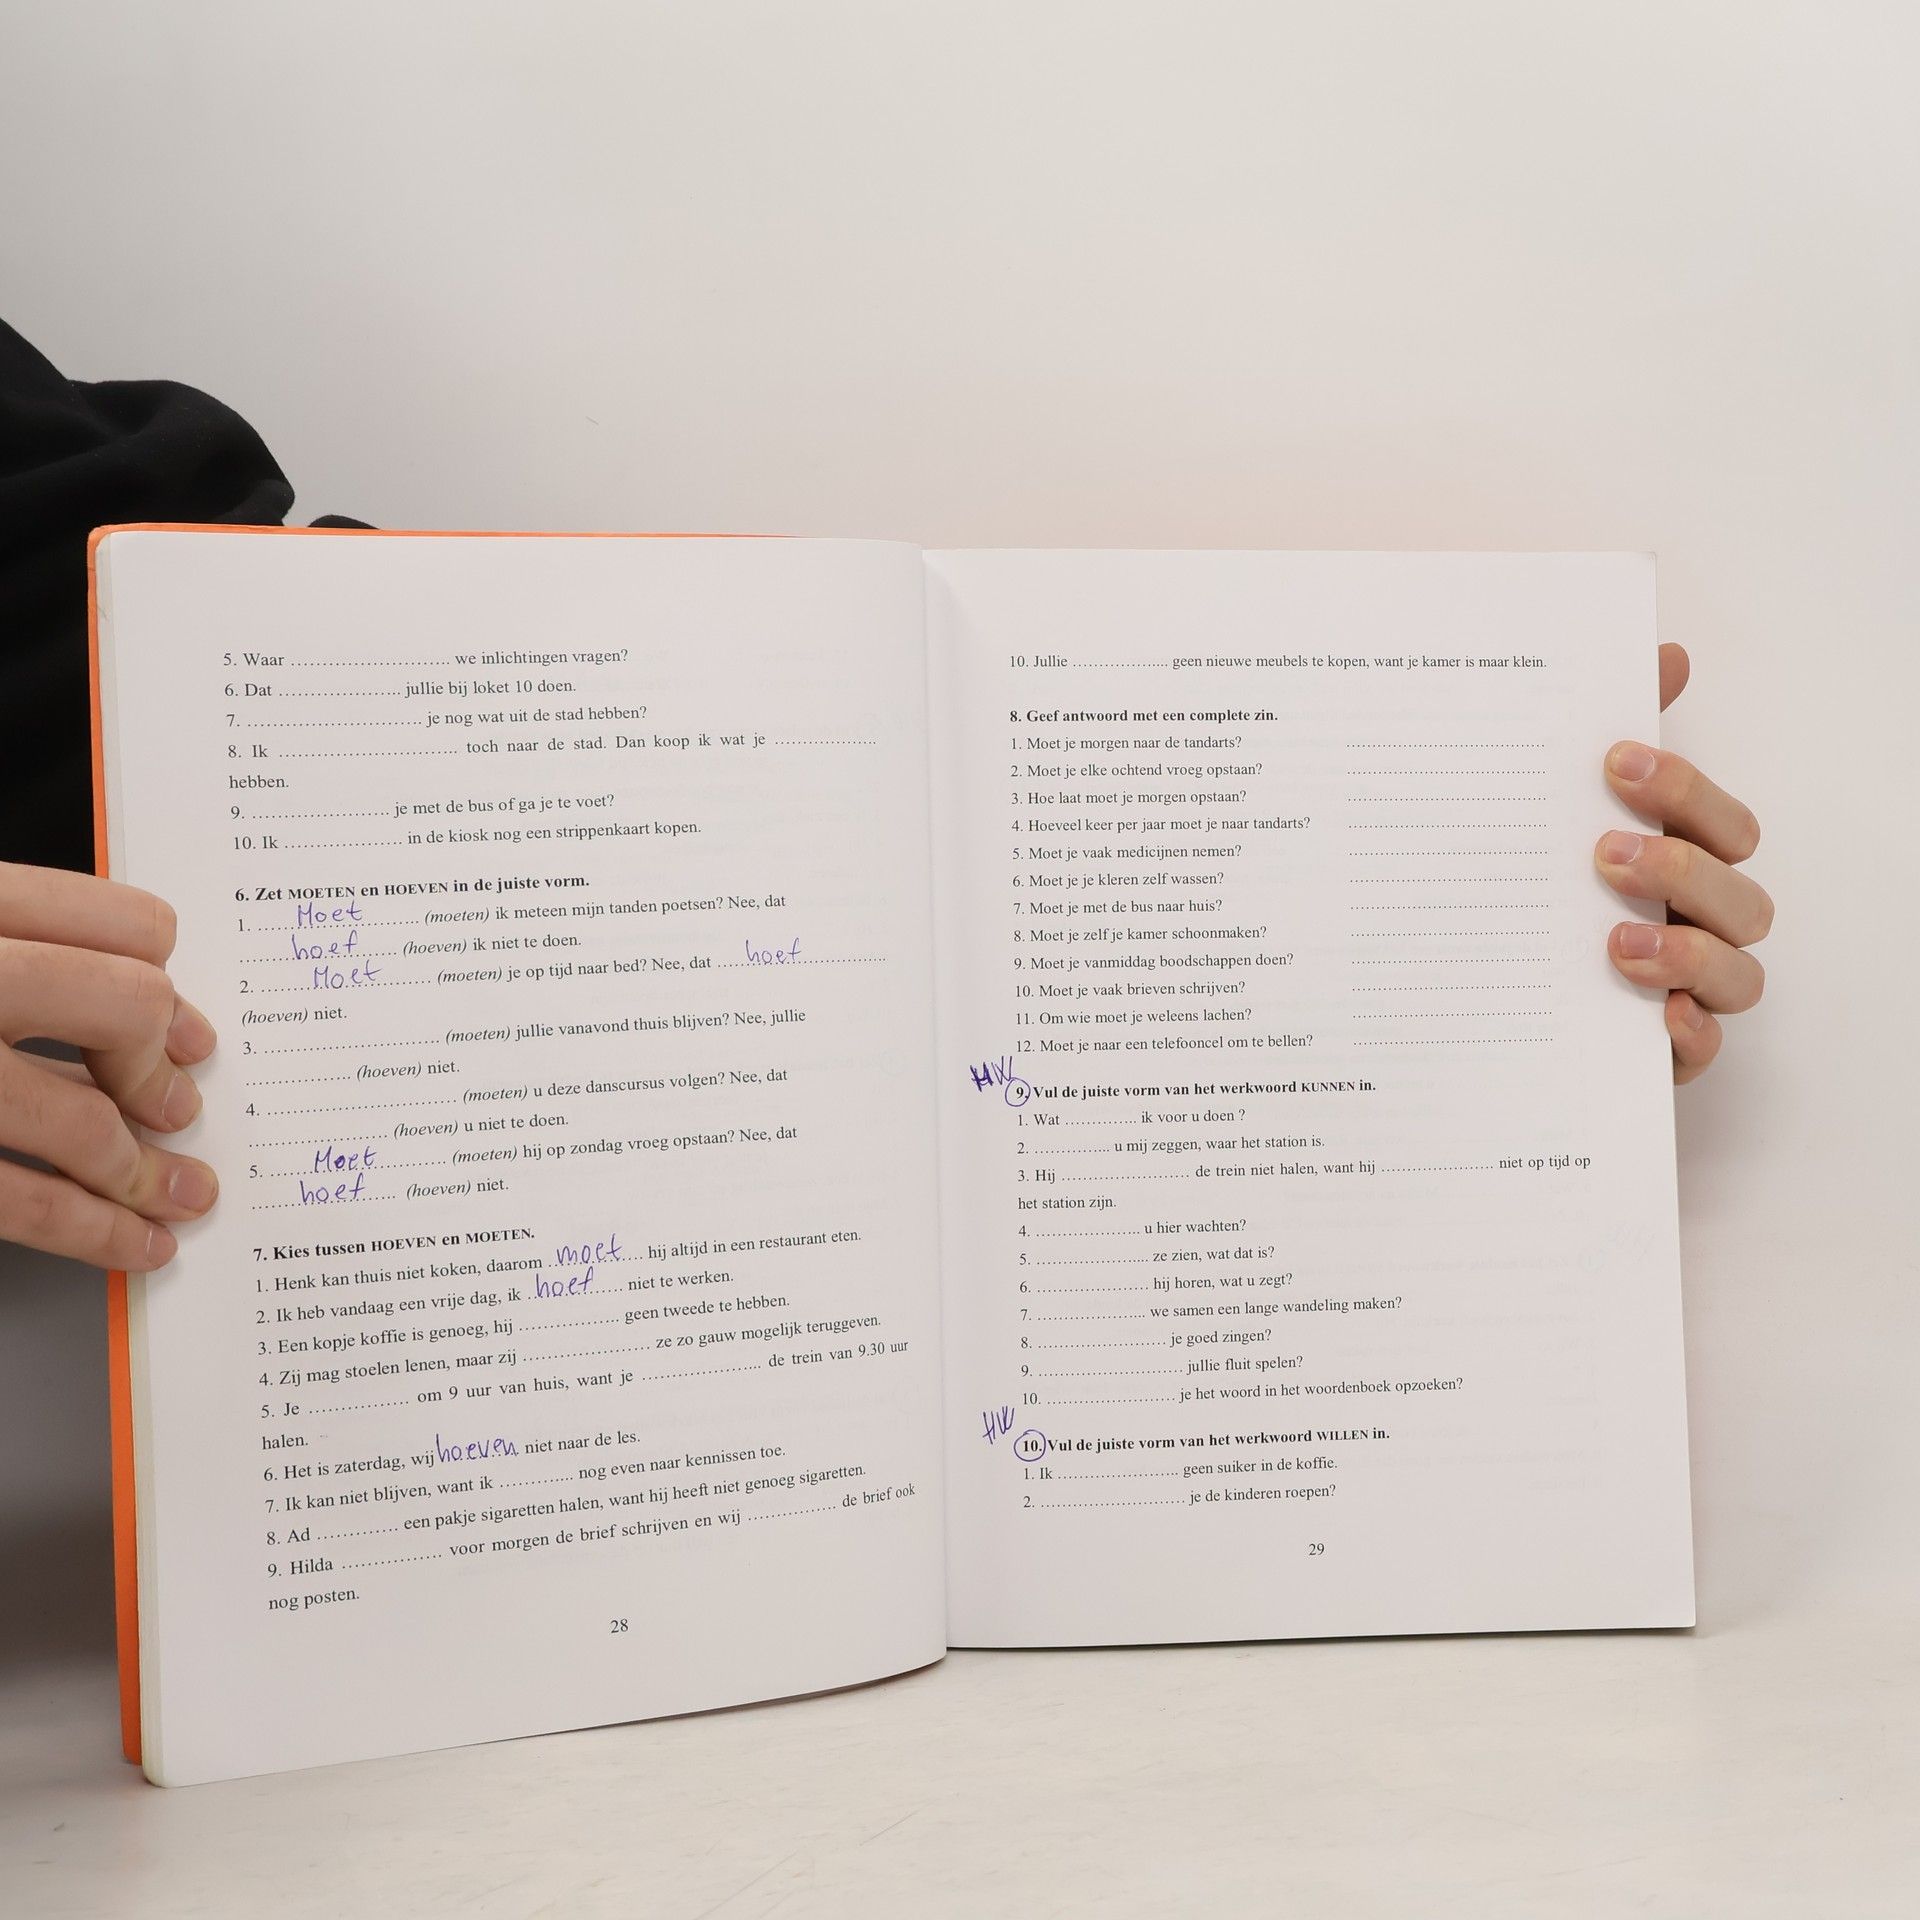 5. Waar ........................... we inlichtingen vragen?
6. Dat ..................... jullie bij loket 10 doen.
7. .............................. je nog wat uit de stad hebben?
8. Ik .............................. toch naar de stad. Dan koop ik wat je .................
hebben.
9. ........................ je met de bus of ga je te voet?
10. Ik .................... in de kiosk nog een strippenkaart kopen.
6. Zet MOETEN en HOEVEN in de juiste vorm.
1. ......Moet......... (moeten) ik meteen mijn tanden poetsen? Nee, dat
........hoef...... (hoeven) ik niet te doen.
2. ........Moet........ (moeten) je op tijd naar bed? Nee, dat .....hoef.............
(hoeven) niet.
3. .............................. (moeten) jullie vanavond thuis blijven? Nee, jullie
.................. (hoeven) niet.
4. ................................ (moeten) u deze danscursus volgen? Nee, dat
........................ (hoeven) u niet te doen.
5. .......Moet............ (moeten) hij op zondag vroeg opstaan? Nee, dat
........hoef..... (hoeven) niet.
7. Kies tussen HOEVEN en MOETEN.
1. Henk kan thuis niet koken, daarom .moet.... hij altijd in een restaurant eten.
2. Ik heb vandaag een vrije dag, ik .hoef..... niet te werken.
3. Een kopje koffie is genoeg, hij ................. geen tweede te hebben.
4. Zij mag stoelen lenen, maar zij ...................... ze zo gauw mogelijk teruggeven.
5. Je ................. om 9 uur van huis, want je ..................... de trein van 9.30 uur
halen.
6. Het is zaterdag, wij hoeven niet naar de les.
7. Ik kan niet blijven, want ik ............. nog even naar kennissen toe.
8. Ad .............. een pakje sigaretten halen, want hij heeft niet genoeg sigaretten.
9. Hilda ................. voor morgen de brief schrijven en wij ............... de brief ook
nog posten.
28
10. Jullie .................. geen nieuwe meubels te kopen, want je kamer is maar klein.
8. Geef antwoord met een complete zin.
1. Moet je morgen naar de tandarts? ........................................
2. Moet je elke ochtend vroeg opstaan? ........................................
3. Hoe laat moet je morgen opstaan? ........................................
4. Hoeveel keer per jaar moet je naar tandarts? ........................................
5. Moet je vaak medicijnen nemen? ........................................
6. Moet je je kleren zelf wassen? ........................................
7. Moet je met de bus naar huis? ........................................
8. Moet je zelf je kamer schoonmaken? ........................................
9. Moet je vanmiddag boodschappen doen? ........................................
10. Moet je vaak brieven schrijven? ........................................
11. Om wie moet je weleens lachen? ........................................
12. Moet je naar een telefooncel om te bellen? ........................................
HW
9. Vul de juiste vorm van het werkwoord KUNNEN in.
1. Wat .............. ik voor u doen ?
2. ............... u mij zeggen, waar het station is.
3. Hij ......................... de trein niet halen, want hij ...................... niet op tijd op
het station zijn.
4. .................... u hier wachten?
5. ...................... ze zien, wat dat is?
6. ...................... hij horen, wat u zegt?
7. ..................... we samen een lange wandeling maken?
8. ......................... je goed zingen?
9. ............................ jullie fluit spelen?
10. ......................... je het woord in het woordenboek opzoeken?
HW
10. Vul de juiste vorm van het werkwoord WILLEN in.
1. Ik ........................ geen suiker in de koffie.
2. ............................ je de kinderen roepen?
29